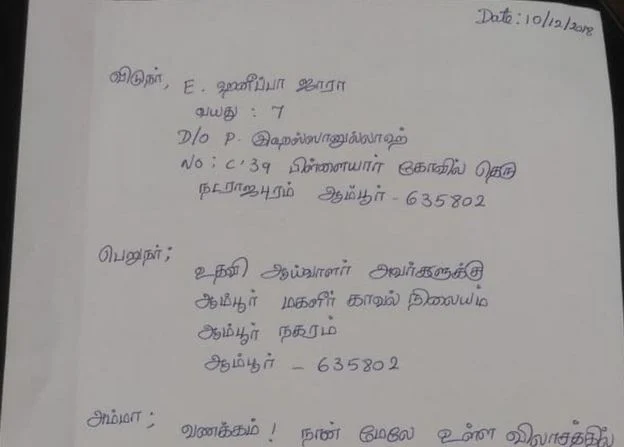 Date: 10/12/2018
விடுநர், E. ஹனீப்பா ஜாரா
வயது : 7
D/O P. இஹஸ்ஸானுல்லாஹ்
No: C'39 பிள்ளையார் கோவில் தெரு
நடராஜபுரம் ஆம்பூர் - 635802
பெறுநர்;
உதவி ஆய்வாளர் அவர்களுக்கு
ஆம்பூர் மகளிர் காவல் நிலையம்
ஆம்பூர் நகரம்
ஆம்பூர் - 635802
அம்மா;
வணக்கம்! நான் மேலே உள்ள விலாசத்தில்